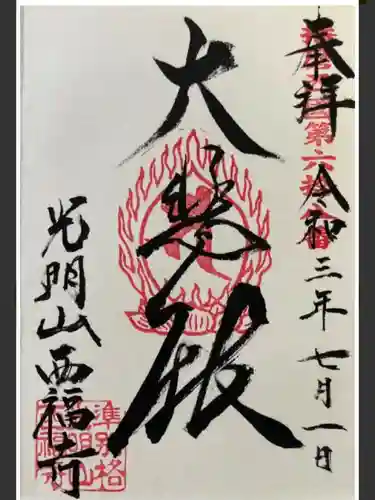 奉拝
令和三年七月一日
大悲殿
光明山西福寺
準別格